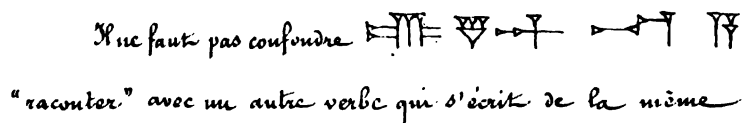 Il ne faut pas confondre
“raconter” avec un autre verbe qui s'écrit de la même